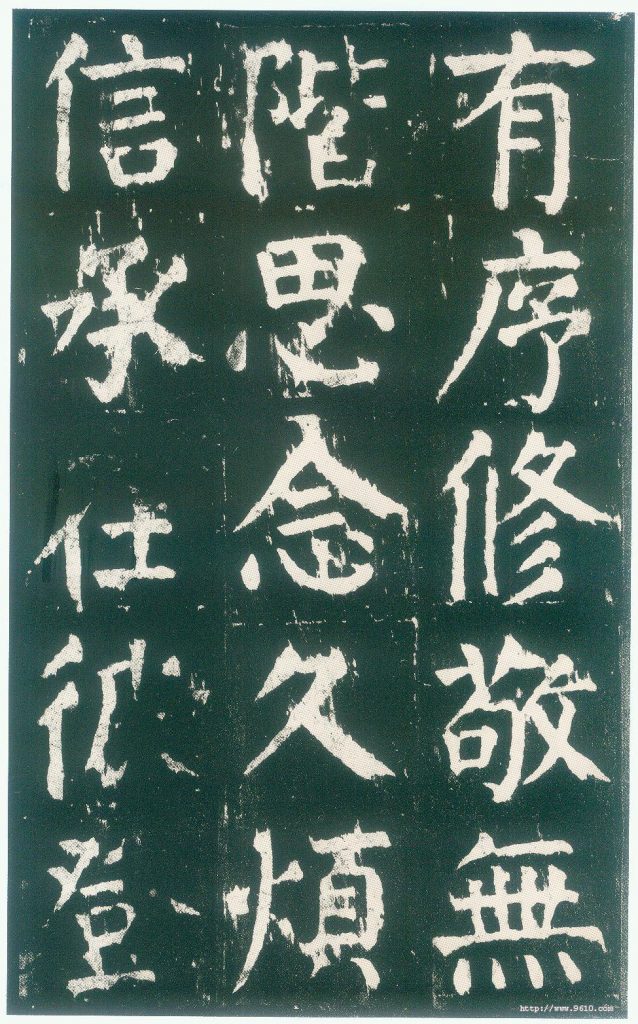 有序修敬無
階思念久煩
信承仕登
http://www.9610.com